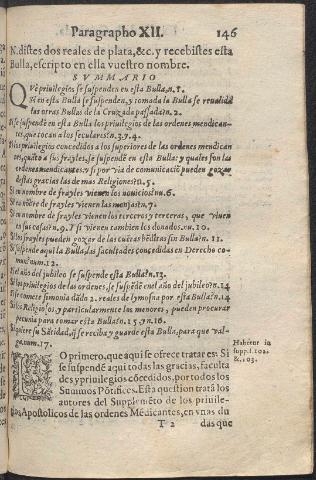 Paragrapho XII. 146
N. distes dos reales de plata, &c. y recebistes esta
Bulla, escripto en ella vuestro nombre.
SVMMARIO
QVe priuilegios se suspenden en esta Bulla, n. 1.
Si en esta Bulla se suspenden, y tomada la Bulla se reualidā
las otras Bullas de la Cruzada passada? n. 2.
Si se suspendē en esta Bulla los priuilegios de las ordenes mendican-
tes, que tocan a los seculares? n. 3. 4.
Si los priuilegios concedidos a los superiores de las ordenes mendican
tes, quāto a sus frayles, se suspendē en esta Bulla: y quales son las
ordenes mendicantes: y si por via de comunicaciō pueden gozar
destas gracias las de mas Religiones? n. 5.
Si en nombre de frayles vienen los nouicios? nu. 6.
Si en nōbre de frayles vienen las monjas? n. 7.
Si en nombre de frayles vienen los terceros y terceras, que viuen
en sus casas? n. 9. Y si vienen tambien los donados. nu. 10.
Si los frayles pueden gozar de las dichas Bullas sin Bulla? n. 11.
Si suspende aqui la Bulla, las facultades concedidas en Derecho co-
mun? num. 12.
Si el año del jubileo se suspende esta Bulla? n. 13.
Si los priuilegios de las ordenes, se suspēdē en el año del jubileo? n. 14
Si se comete simonia dādo 2. reales de lymosna por esta Bulla? n. 14
Si los Religiosos, y particularmente los menores, pueden procurar
pecunia para tomar esta Bulla? n. 15. y n. 16.
Si quiere su Sātidad, q̄ se reciba y guarde esta Bulla, para que val-
ga. num. 17.
LO primero, que aqui se ofrece tratar es: Si
se suspendē aqui todas las gracias, faculta
des y priuilegios cōcedidos, por todos los
Summos Pōtifices. Esta question tratā los
autores del Supplemēto de los priuile-
gios Apostolicos de las ordenes Mēdicantes, en vnas du
Habētur in
supp. f. 102.
& 103.
T 2 das que